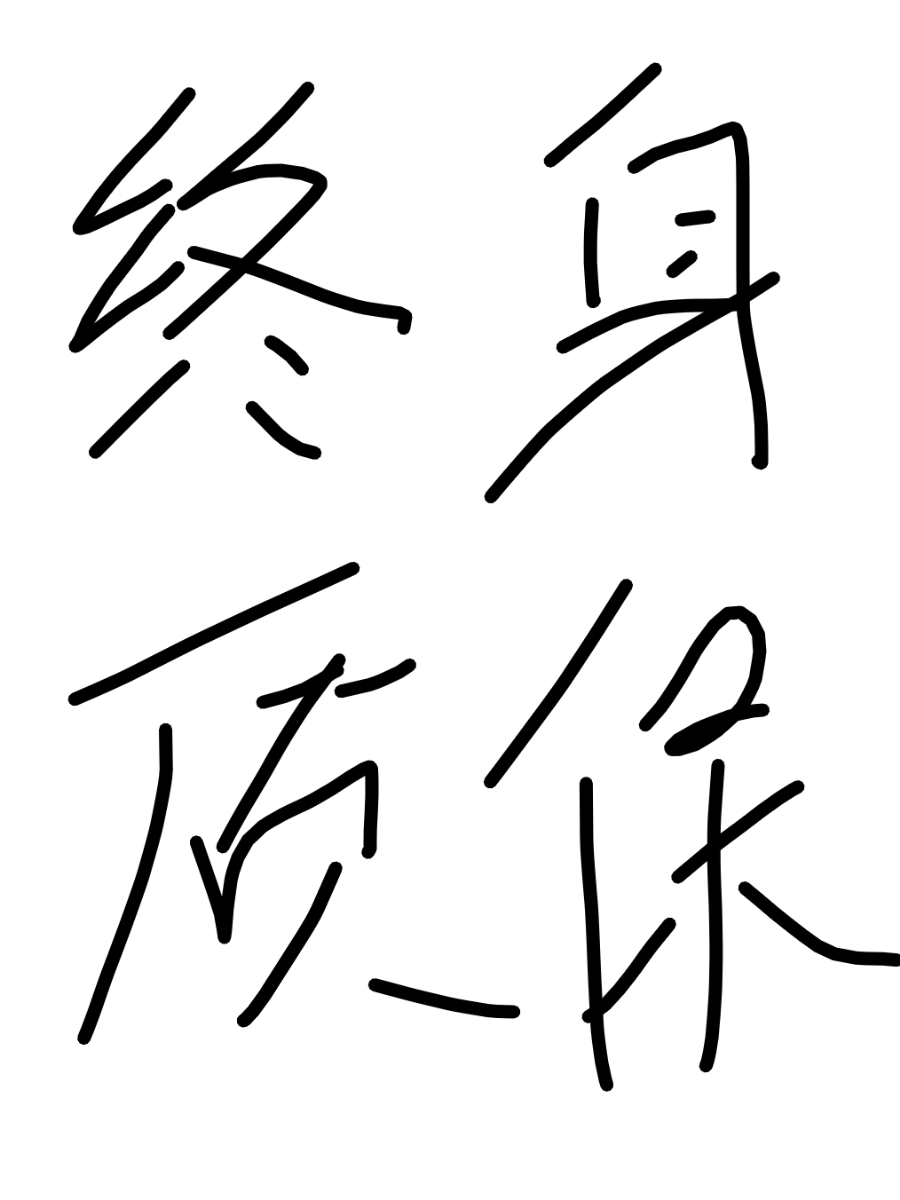 终身
质保